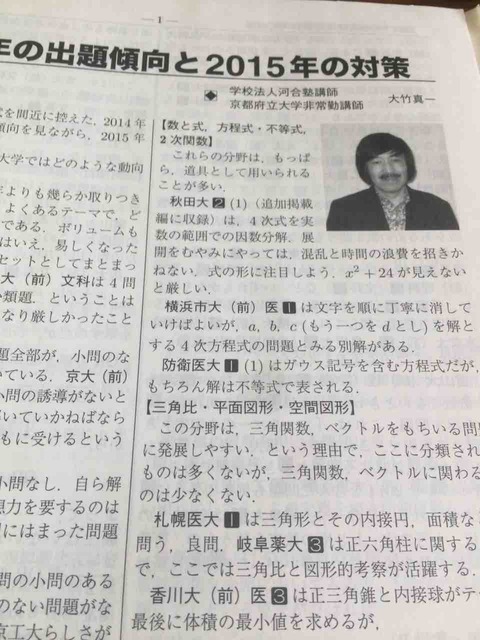 — 1 —
年の出題傾向と2015年の対策
◆ 学校法人河合塾講師
京都府立大学非常勤講師
大竹真一
式を間近に控えた.2014年
傾向を見ながら,2015年
大学ではどのような動向
年よりも幾らか取りつき
よくあるテーマで,ど
である.ボリュームも
はいえ,易しくなった
セットとしてまとまっ
大(前)文科は4問
い類題.ということは
なり厳しかったこと
題全部が,小問のな
いている.京大(前)
小問の誘導がないと
いていかねばなら
もに受けるという
小問なし.自ら解
想力を要するのは
にはまった問題
問の小問のある
のない問題がな
京工大らしさが
【数と式,方程式・不等式,
2次関数】
これらの分野は,もっぱ
ら,道具として用いられる
ことが多い.
秋田大2(1)(追加掲載
編に収録)は,4次式を実
数の範囲での因数分解.展
開をむやみにやっては,混乱と時間の浪費を招きか
ねない.式の形に注目しよう.x²+24が見えない
と厳しい.
横浜市大(前)医1は文字を順に丁寧に消して
いけばよいが,a, b, c(もう一つをdとし)を解と
する4次方程式の問題とみる別解がある.
防衛医大1(1)はガウス記号を含む方程式だが,
もちろん解は不等式で表される.
【三角比・平面図形・空間図形】
この分野は,三角関数,ベクトルをもちいる問
に発展しやすい,という理由で,ここに分類され
ものは多くないが,三角関数,ベクトルに関わる
のは少なくない.
札幌医大1は三角形とその内接円,面積な
問う,良問.岐阜薬大3は正六角柱に関する
で,ここでは三角比と図形的考察が活躍する.
香川大(前)医3は正三角錐と内接球がテー
最後に体積の最小値を求めるが,